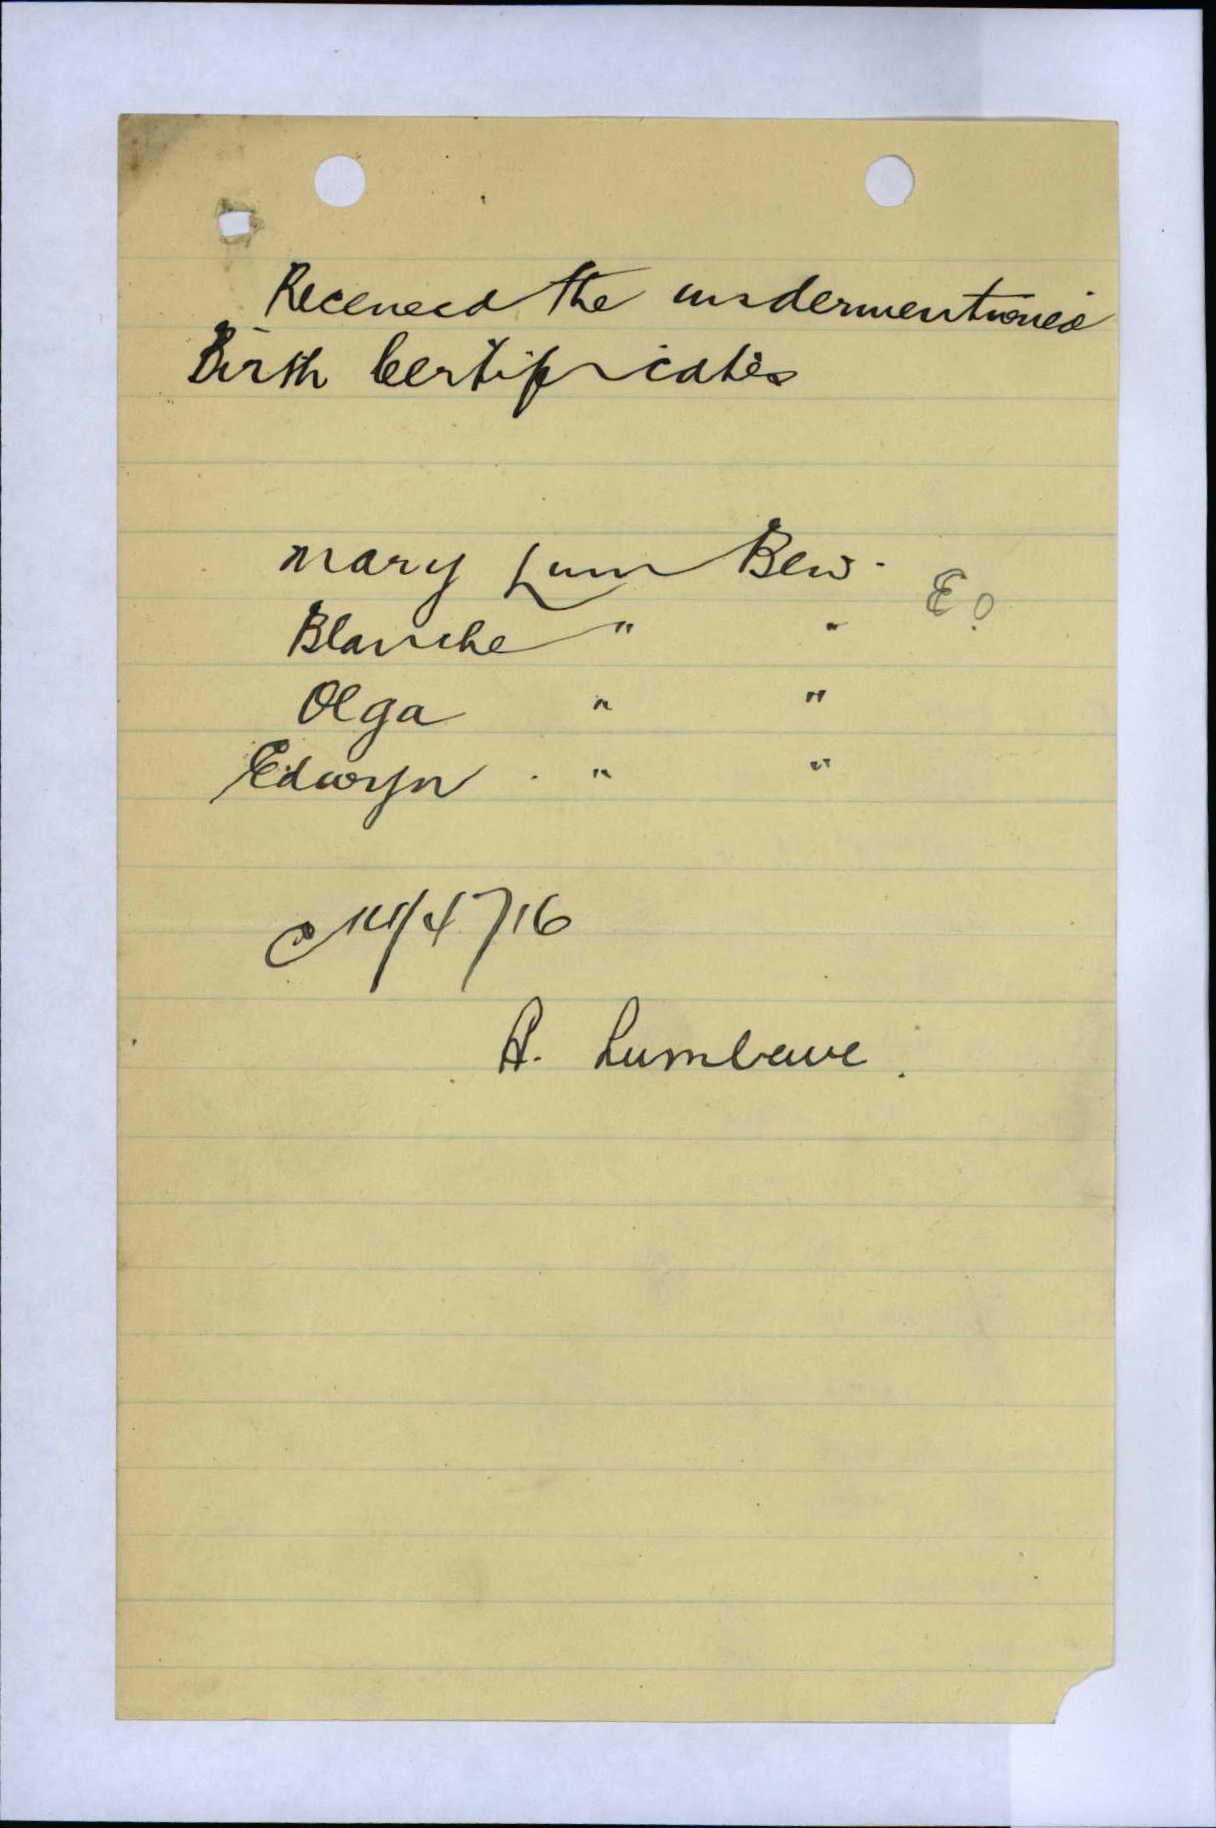 Received the undermentioned
Birth Certificates
Mary Lum Bew.
Blanche " "
Olga " "
Edwyn . " "
14/4/16
A. Lumbewe.